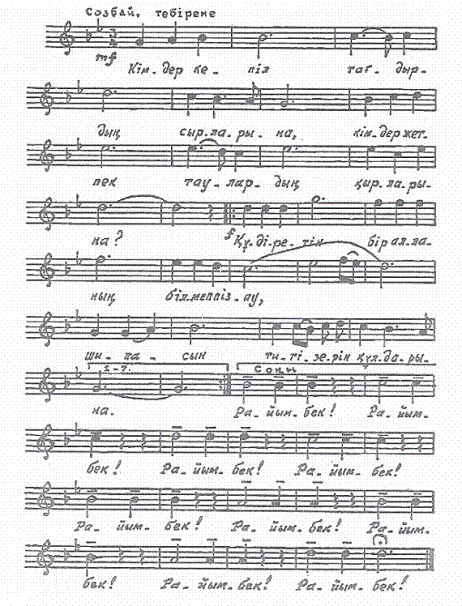 Созбай, тебірене
mf
Кім-дер ке-піл тағ-дыр-
дың сыр-ла-ры-на, кім-дер жет-
пек тау-лар-дың қыр-ла-ры-
на? f Құ-ді-ре-тін бір ал-ла-
ның біл-меппіз-ау,
ши-па-сын ти-гі-зе-рін құл-да-ры-
1-7. Соңы
на. Ра-йым-бек! Ра-йым-
бек! Ра-йым-бек! Ра-йым-бек!
Ра-йым-бек! Ра-йым-бек! Ра-йым-
бек! Ра-йым-бек! Ра-йым-бек!